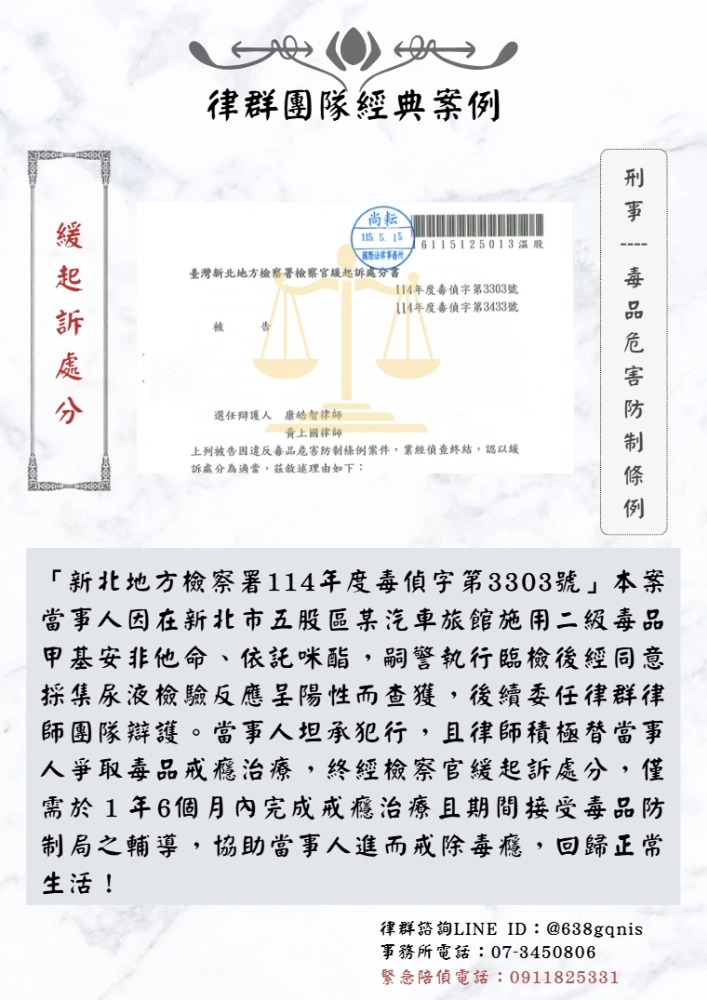 律群團隊經典案例
緩起訴處分
刑事----毒品危害防制條例
尚耘
115.5.15
國際法律事務所
16115125013溫股
臺灣新北地方檢察署檢察官緩起訴處分書
114年度毒偵字第3303號
114年度毒偵字第3433號
被 告
選任辯護人 康皓智律師
黃上國律師
上列被告因違反毒品危害防制條例案件,業經偵查終結,認以緩
訴處分為適當,茲敘述理由如下:
「新北地方檢察署114年度毒偵字第3303號」本案
當事人因在新北市五股區某汽車旅館施用二級毒品
甲基安非他命、依託咪酯,嗣警執行臨檢後經同意
採集尿液檢驗反應呈陽性而查獲,後續委任律群律
師團隊辯護。當事人坦承犯行,且律師積極替當事
人爭取毒品戒癮治療,終經檢察官緩起訴處分,僅
需於1年6個月內完成戒癮治療且期間接受毒品防
制局之輔導,協助當事人進而戒除毒癮,回歸正常
生活!
律群諮詢LINE ID:@638gqnis
事務所電話:07-3450806
緊急陪偵電話:0911825331